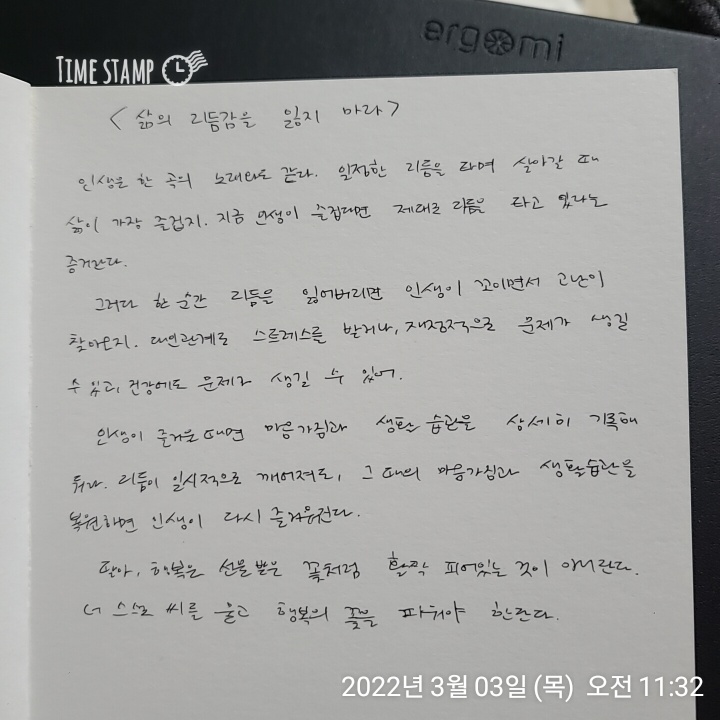 argomi
TIME STAMP
<삶의 리듬감을 잃지 마라>
인생은 한 곡의 노래와도 같다. 일정한 리듬을 타며 살아갈 때
삶이 가장 즐겁지. 지금 인생이 즐겁다면 제대로 리듬을 타고 있다는
증거란다.
그러다 한 순간 리듬을 잃어버리면 인생이 꼬이면서 고난이
찾아오지. 대인관계로 스트레스를 받거나, 재정적으로 문제가 생길
수 있고, 건강에도 문제가 생길 수 있어.
인생이 즐거울 때면 마음가짐과 생활 습관을 상세히 기록해
둬라. 리듬이 일시적으로 깨어져도, 그 때의 마음가짐과 생활습관을
복원하면 인생이 다시 즐거워진다.
딸아, 행복은 선물받은 꽃처럼 활짝 피어있는 것이 아니란다.
너 스스로 씨를 심고 행복의 꽃을 피워야 한단다.
2022년 3월 03일 (목) 오전 11:32